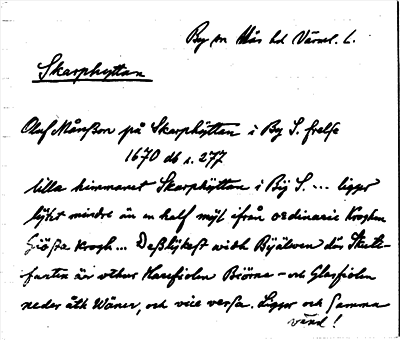 By sn Nås hd Värml. l.
Skarphyttan
Oluf Månsson på Skarphÿttan i By S. frelse
1670 db s. 277
lilla himmanet Skarphÿttan i Bÿ S. ... ligger
lÿtet mindre än en half mÿl ifrån ordinarie Kroghen
Siöffle Krogh... Desslÿkest widh Byälwen där Skute-
farten är uthur Harefiolen Biörne- och Glasfiolen
neder åth Wäner, och vice versa. Ligger och samma
vänd!